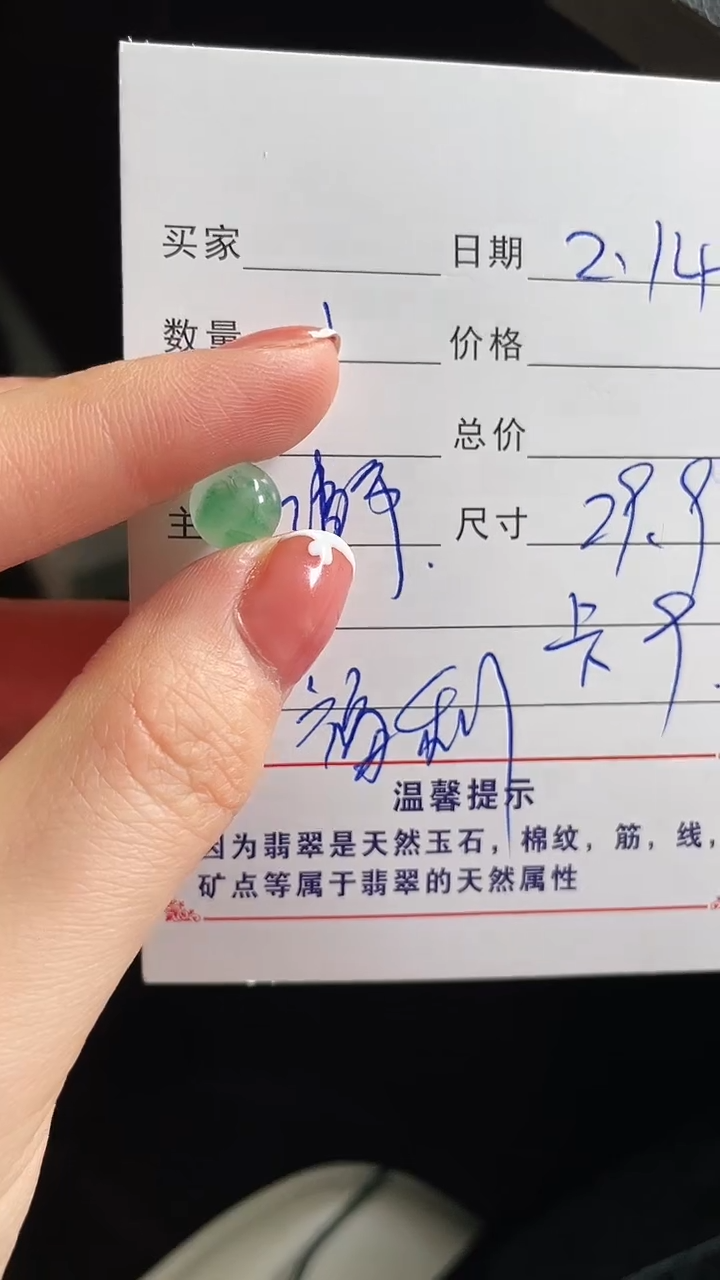 买家 日期 2.14
数量 1 价格
总价
主 尺寸 29.9
卡 9
福利
温馨提示
因为翡翠是天然玉石，棉纹，筋，线，
矿点等属于翡翠的天然属性